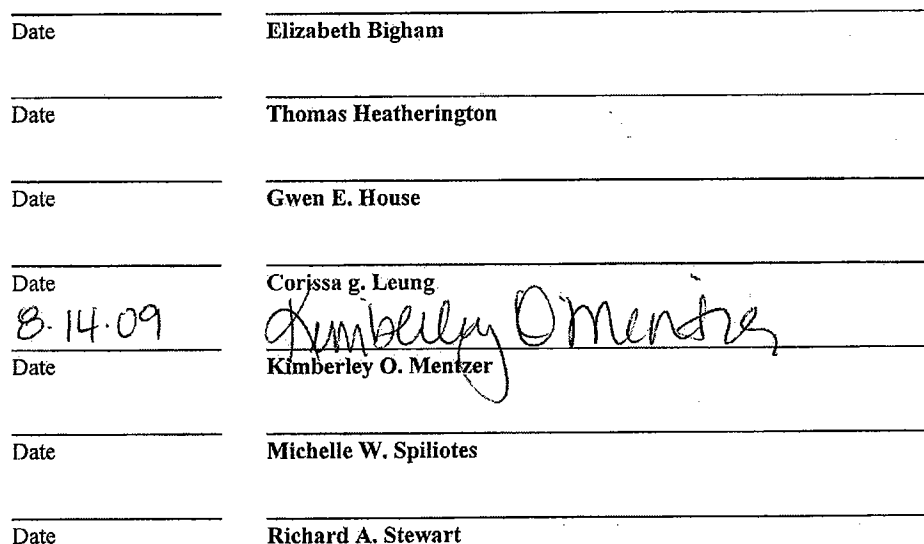 Date Elizabeth Bigham
Date Thomas Heatherington
Date Gwen E. House
Date Corissa g. Leung
8.14.09 Kimberley O Mentzer
Date Kimberley O. Mentzer
Date Michelle W. Spiliotes
Date Richard A. Stewart